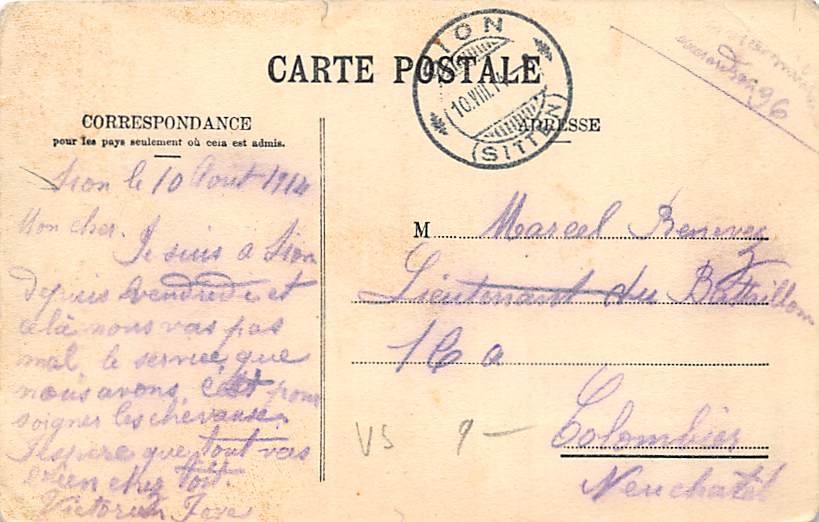 CARTE POSTALE
SION
10.VIII.14
(SITTEN)
CORRESPONDANCE
pour les pays seulement où cela est admis.
ADRESSE
Sion le 10 Aout 1914
Mon cher.
Je suis a Sion
depuis vendredi et
cela nous vas pas
mal, le service que
nous avons, c'est pour
soigner les chevaux.
J'espère que tout vas
bien chez toit.
M Marcel Renevey
Lieutenant du Battaillon
16
Colombier
Neuchatel
VS
9 —